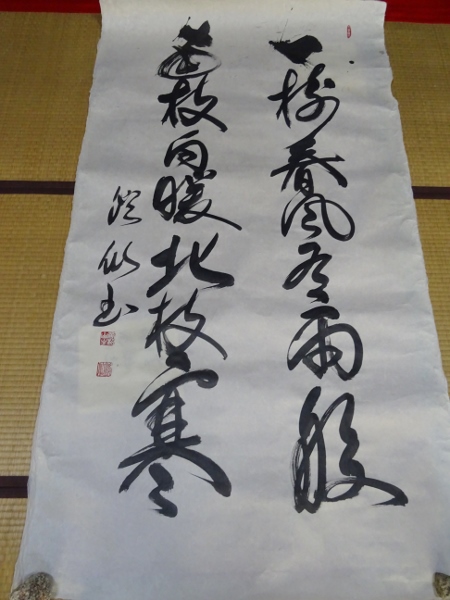 一樹春風有両般
南枝向暖北枝寒
書